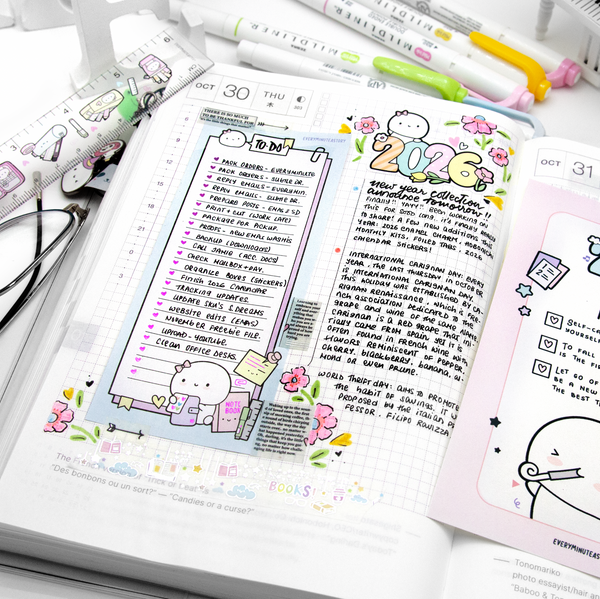 MILDLINER
MILDLINER
MILDLINER
ZEBRA
OCT 30 THU
木
THERE IS SO MUCH
TO BE THANKFUL FOR
EVERYMINUTEASTORY
TO·DO
PACK ORDERS - EVERYMINUTE
PACK ORDERS - SUBTLE DR.
REPLY EMAILS - EVERYMIN.
REPLY EMAILS - SUBTLE DR.
PREPARE POSTS - EMAS / SD
PRINT + CUT (WORK LATE)
PACKAGE FOR PICKUP.
PROPS - NEW EMAL WASHIS
BACKUP (DOWNLOADS)
CALL JAMIE (ACC DOCS)
CHECK MAILBOX + DAY.
ORGANISE BOXES (STICKERS)
FINISH 2026 CALENDAR
TRACKING UPDATES.
UPDATE SKU'S & BRANDS
WEBSITE EDITS (EMAS)
NOVEMBER FREEBIE FILE.
UPLOAD - YOUTUBE.
CLEAN OFFICE DESKS.
NOTE
BOOK
Waking up to the smell
2026
new year collection
announce tomorrow!!
FINALLY!! YAYY! BEEN WORKING ON
THIS FOR SOOO LONG. IT'S FINALLY READY
TO SHARE! A FEW NEW ADDITIONS THIS
YEAR: 2026 ENAMEL CHARM, ADDITIONAL
MONTHLY KITS, FOILED TABS, 2026
CALENDAR STICKERS!
INTERNATIONAL CARIGNAN DAY: EVERY
YEAR, THE LAST THURSDAY IN OCTOBER
IS INTERNATIONAL CARIGNAN DAY.
THIS HOLIDAY WAS ESTABLISHED BY CA-
RIGNAN RENAISSANCE, WHICH IS A FRE-
NCH ASSOCIATION DEDICATED TO THE
GRAPE AND WINE OF THE SAME NAME.
CARIGNAN IS A RED GRAPE THAT INI-
TIALLY CAME FROM SPAIN YET IT IS
OFTEN FOUND IN FRENCH WINE WITH
FLAVORS REMINISCENT OF PEPPER,
CHERRY, BLACKBERRY, BANANA, AL-
MOND OR EVEN PRUNE.
WORLD THRIFT DAY: AIMS TO PROMOTE
THE HABIT OF SAVINGS, IT
PROPOSED BY THE ITALIAN P
FESSOR - FILIPO RAVIZZA
BOOKS!
"Des bonbons ou un sort?" — "Candies or a curse?"
OCT 31
SELF-CAR
YOURSELF
TO FALL
IS THE FI
LET GO OF
BE A NEW
THE BEST T
EVERYMINUTEAS
Tonomariko
photo essayist/hair an
"Baboo & To